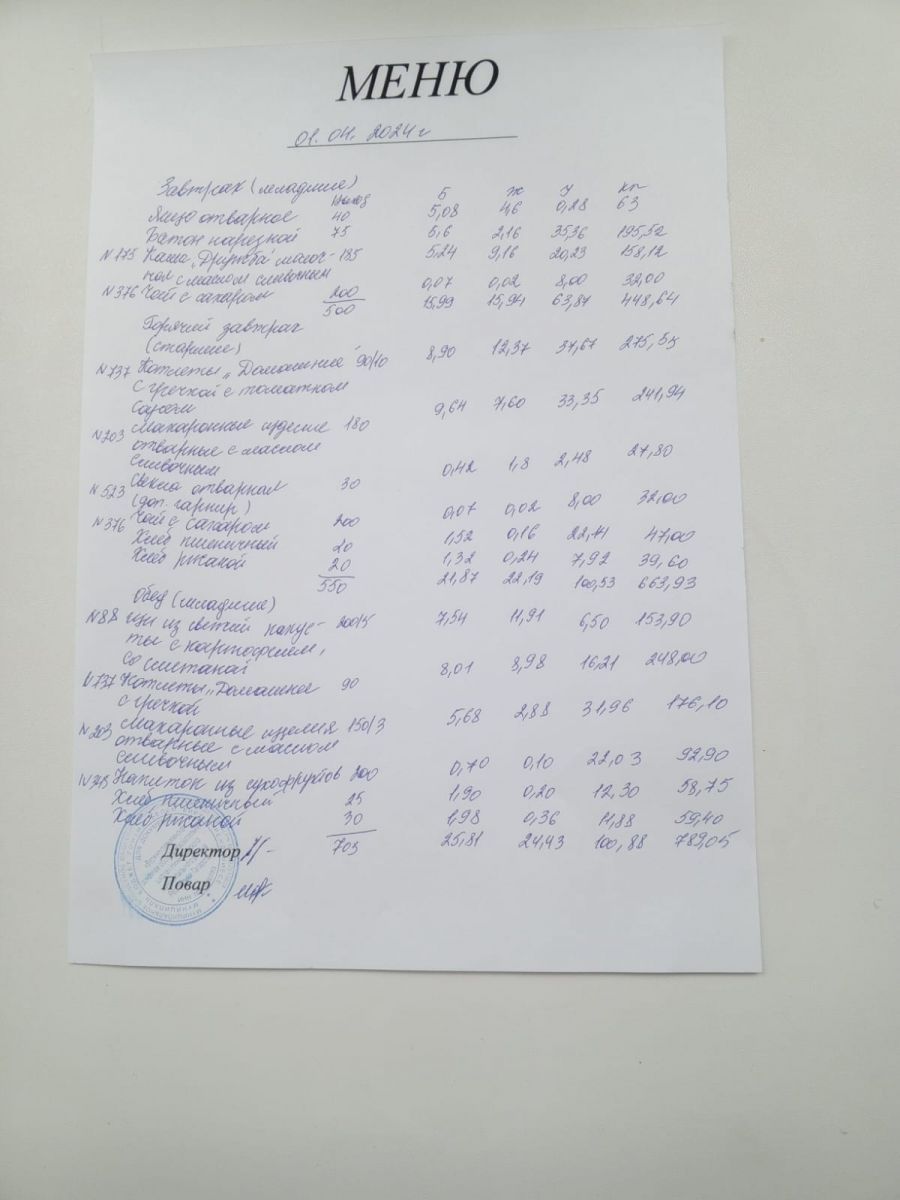 МЕНЮ
01. 04. 2024 г
Завтрак (младшие) Выход Б Ж У кк
Яйцо отварное 40 5,08 4,6 0,28 63
Батон нарезной 75 5,6 2,16 35,36 195,52
N 175 Каша „Дружба" молоч- 185 5,24 9,16 20,23 158,12
ная с маслом сливочным
N 376 Чай с сахаром 200 0,07 0,02 8,00 32,00
500 15,99 15,94 63,87 448,64
Горячий завтрак
(старшие)
N 737 Котлеты „Домашние" 90/10 8,90 12,37 37,67 275,53
с гречкой с томатном
соусом
N 203 Макаронные изделие 180 9,64 7,60 33,35 241,94
отварные с маслом
сливочным
N 523 Свекла отварная 30 0,42 1,8 2,48 27,80
(доп. гарнир)
N 376 Чай с сахаром 200 0,07 0,02 8,00 32,00
Хлеб пшеничный 20 1,52 0,16 22,11 47,00
Хлеб ржаной 20 1,32 0,24 7,92 39,60
550 21,87 22,19 100,53 663,93
Обед (младшие)
N 88 щи из свежий капус- 200/5 7,54 11,91 6,50 153,90
ты с картофелем,
со сметаной
N 737 Котлеты „Домашние 90 8,01 8,98 16,21 248,00
с гречкой
N 203 Макаронные изделия 150/3 5,68 2,88 31,96 176,10
отварные с маслом
сливочным
Напиток из сухофруктов 200 0,70 0,10 22,03 92,90
Хлеб пшеничный 25 1,90 0,20 12,30 58,75
Хлеб ржаной 30 1,98 0,36 11,88 59,40
703 25,81 24,43 100,88 789,05
Директор
Повар